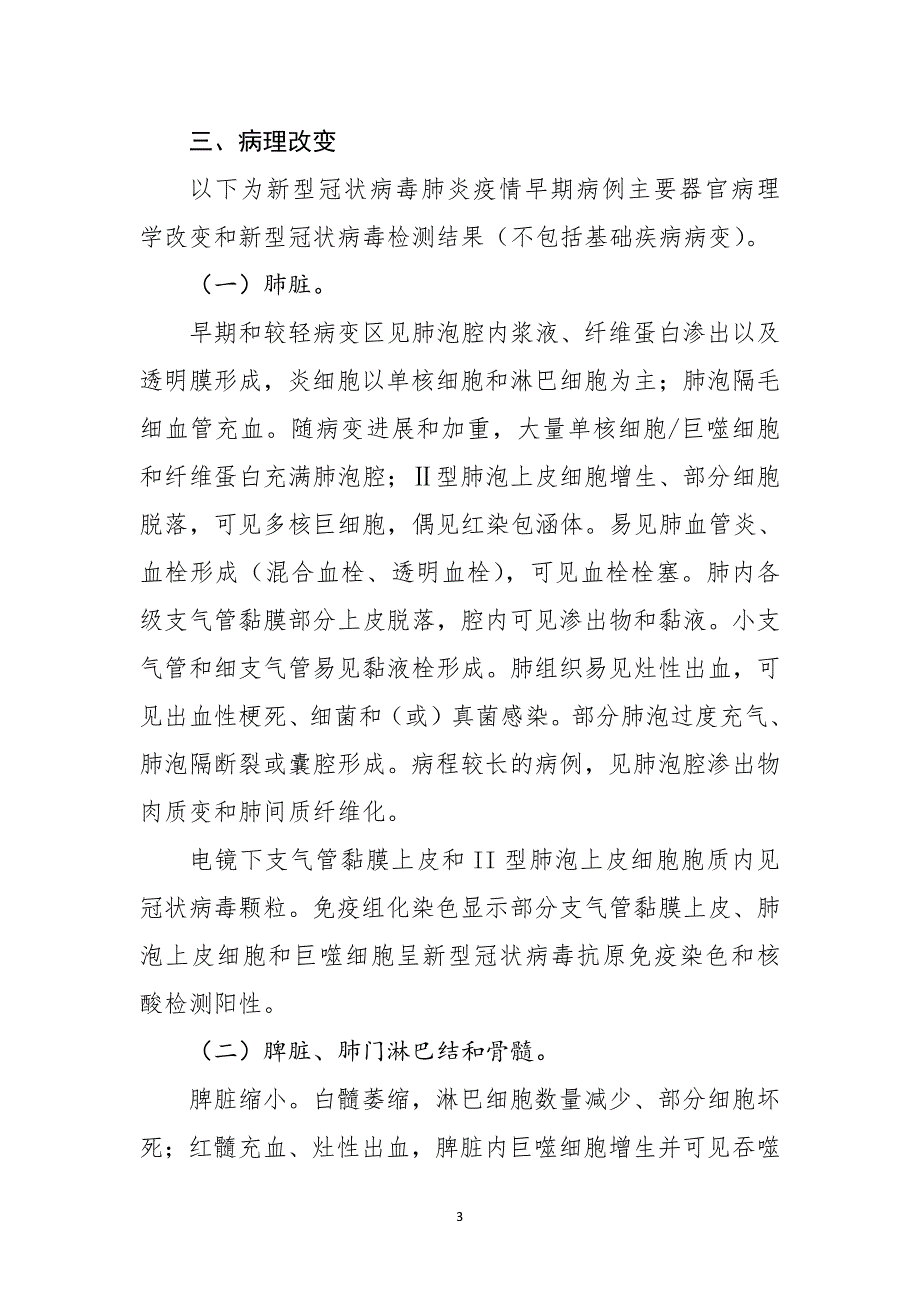 三、病理改变
以下为新型冠状病毒肺炎疫情早期病例主要器官病理
学改变和新型冠状病毒检测结果（不包括基础疾病病变）。
（一）肺脏。
早期和较轻病变区见肺泡腔内浆液、纤维蛋白渗出以及
透明膜形成，炎细胞以单核细胞和淋巴细胞为主；肺泡隔毛
细血管充血。随病变进展和加重，大量单核细胞/巨噬细胞
和纤维蛋白充满肺泡腔；Ⅱ型肺泡上皮细胞增生、部分细胞
脱落，可见多核巨细胞，偶见红染包涵体。易见肺血管炎、
血栓形成（混合血栓、透明血栓），可见血栓栓塞。肺内各
级支气管黏膜部分上皮脱落，腔内可见渗出物和黏液。小支
气管和细支气管易见黏液栓形成。肺组织易见灶性出血，可
见出血性梗死、细菌和（或）真菌感染。部分肺泡过度充气、
肺泡隔断裂或囊腔形成。病程较长的病例，见肺泡腔渗出物
肉质变和肺间质纤维化。
电镜下支气管黏膜上皮和 II 型肺泡上皮细胞胞质内见
冠状病毒颗粒。免疫组化染色显示部分支气管黏膜上皮、肺
泡上皮细胞和巨噬细胞呈新型冠状病毒抗原免疫染色和核
酸检测阳性。
（二）脾脏、肺门淋巴结和骨髓。
脾脏缩小。白髓萎缩，淋巴细胞数量减少、部分细胞坏
死；红髓充血、灶性出血，脾脏内巨噬细胞增生并可见吞噬
3